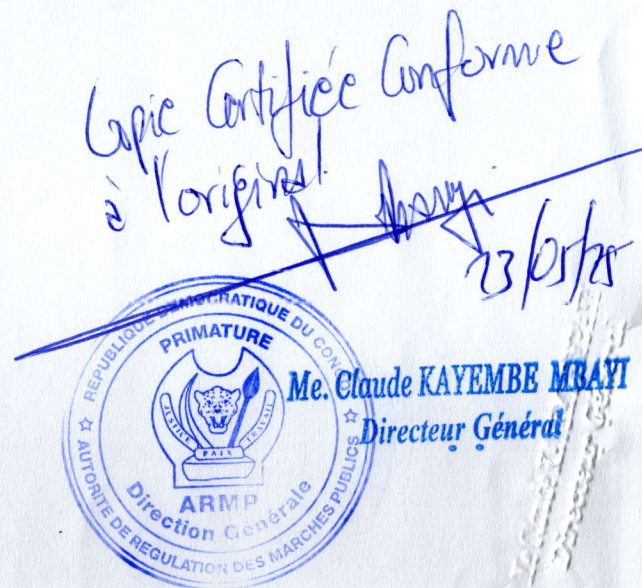 Copie Certifiée Conforme
à l'original
23/05/25
REPUBLIQUE DEMOCRATIQUE DU CONGO
PRIMATURE
JUSTICE PAIX TRAVAIL
ARMP
Direction Générale
☆ AUTORITE DE REGULATION DES MARCHES PUBLICS ☆
Me. Claude KAYEMBE MBAYI
Directeur Général